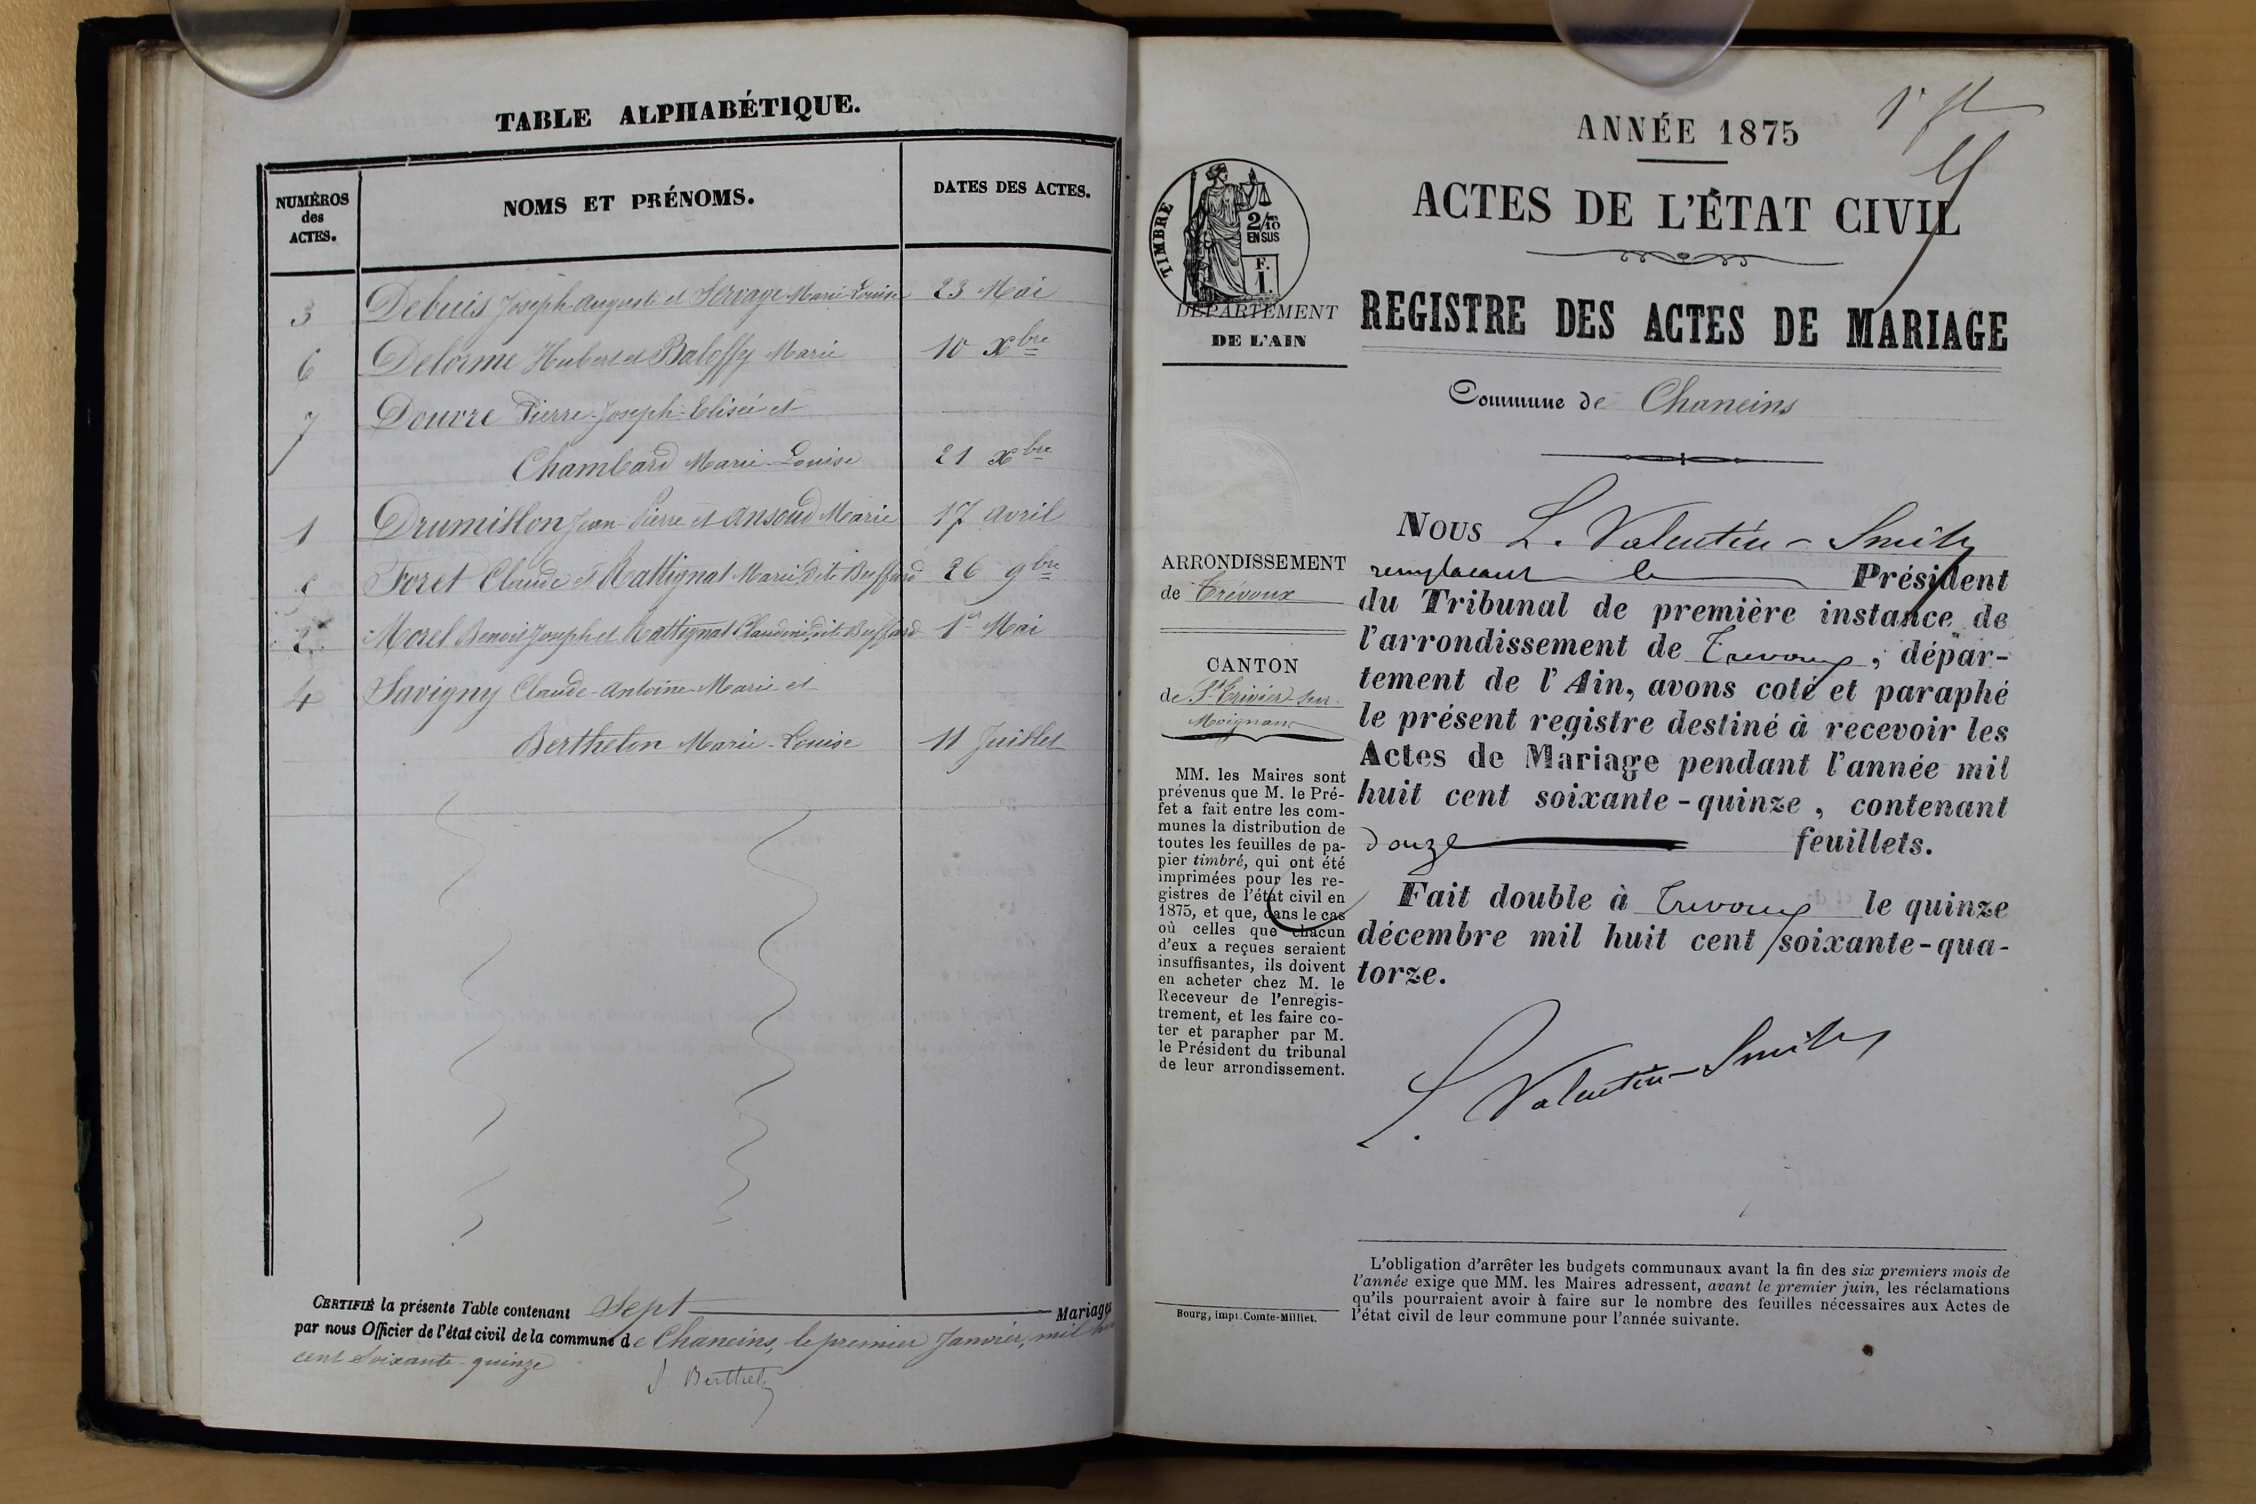 TABLE ALPHABÉTIQUE.
NUMÉROS
des
ACTES.
NOMS ET PRÉNOMS.
DATES DES ACTES.
3 Debuis Joseph-Auguste et Servage Marie-Louise 23 Mai
6 Delorme Hubert et Baloffy Marie 10 Xbre
7 Douvre Pierre-Joseph-Elisée et
Chambard Marie-Louise 21 Xbre
1 Drumillon Jean-Pierre et Ansoud Marie 17 avril
Foret Claude et Rattignat Marie dite Buffard 26 9bre
2 Morel Benoit Joseph et Rattignat Claudine dite Buffard 1er Mai
4 Savigny Claude-Antoine-Marie et
Berthelon Marie-Louise 11 Juillet
CERTIFIÉ la présente Table contenant Sept Mariages
par nous Officier de l'état civil de la commune de Chaneins, le premier Janvier, mil huit
cent soixante-quinze
ANNÉE 1875
ACTES DE L'ÉTAT CIVIL
TIMBRE
2/10
EN SUS
F.
1.
DÉPARTEMENT
DE L'AIN
REGISTRE DES ACTES DE MARIAGE
Commune de Chaneins
ARRONDISSEMENT
de Trévoux
CANTON
de St Trivier sur
Moignans
MM. les Maires sont
prévenus que M. le Pré-
fet a fait entre les com-
munes la distribution de
toutes les feuilles de pa-
pier timbré, qui ont été
imprimées pour les re-
gistres de l'état civil en
1875, et que, dans le cas
où celles que chacun
d'eux a reçues seraient
insuffisantes, ils doivent
en acheter chez M. le
Receveur de l'enregis-
trement, et les faire co-
ter et parapher par M.
le Président du tribunal
de leur arrondissement.
Bourg, impr. Comte-Milliet.
NOUS L. Valentin-Smith
remplaçant le Président
du Tribunal de première instance de
l'arrondissement de Trévoux, dépar-
tement de l'Ain, avons coté et paraphé
le présent registre destiné à recevoir les
Actes de Mariage pendant l'année mil
huit cent soixante-quinze, contenant
douze feuillets.
Fait double à Trévoux le quinze
décembre mil huit cent soixante-qua-
torze.
L. Valentin-Smith
L'obligation d'arrêter les budgets communaux avant la fin des six premiers mois de
l'année exige que MM. les Maires adressent, avant le premier juin, les réclamations
qu'ils pourraient avoir à faire sur le nombre des feuilles nécessaires aux Actes de
l'état civil de leur commune pour l'année suivante.